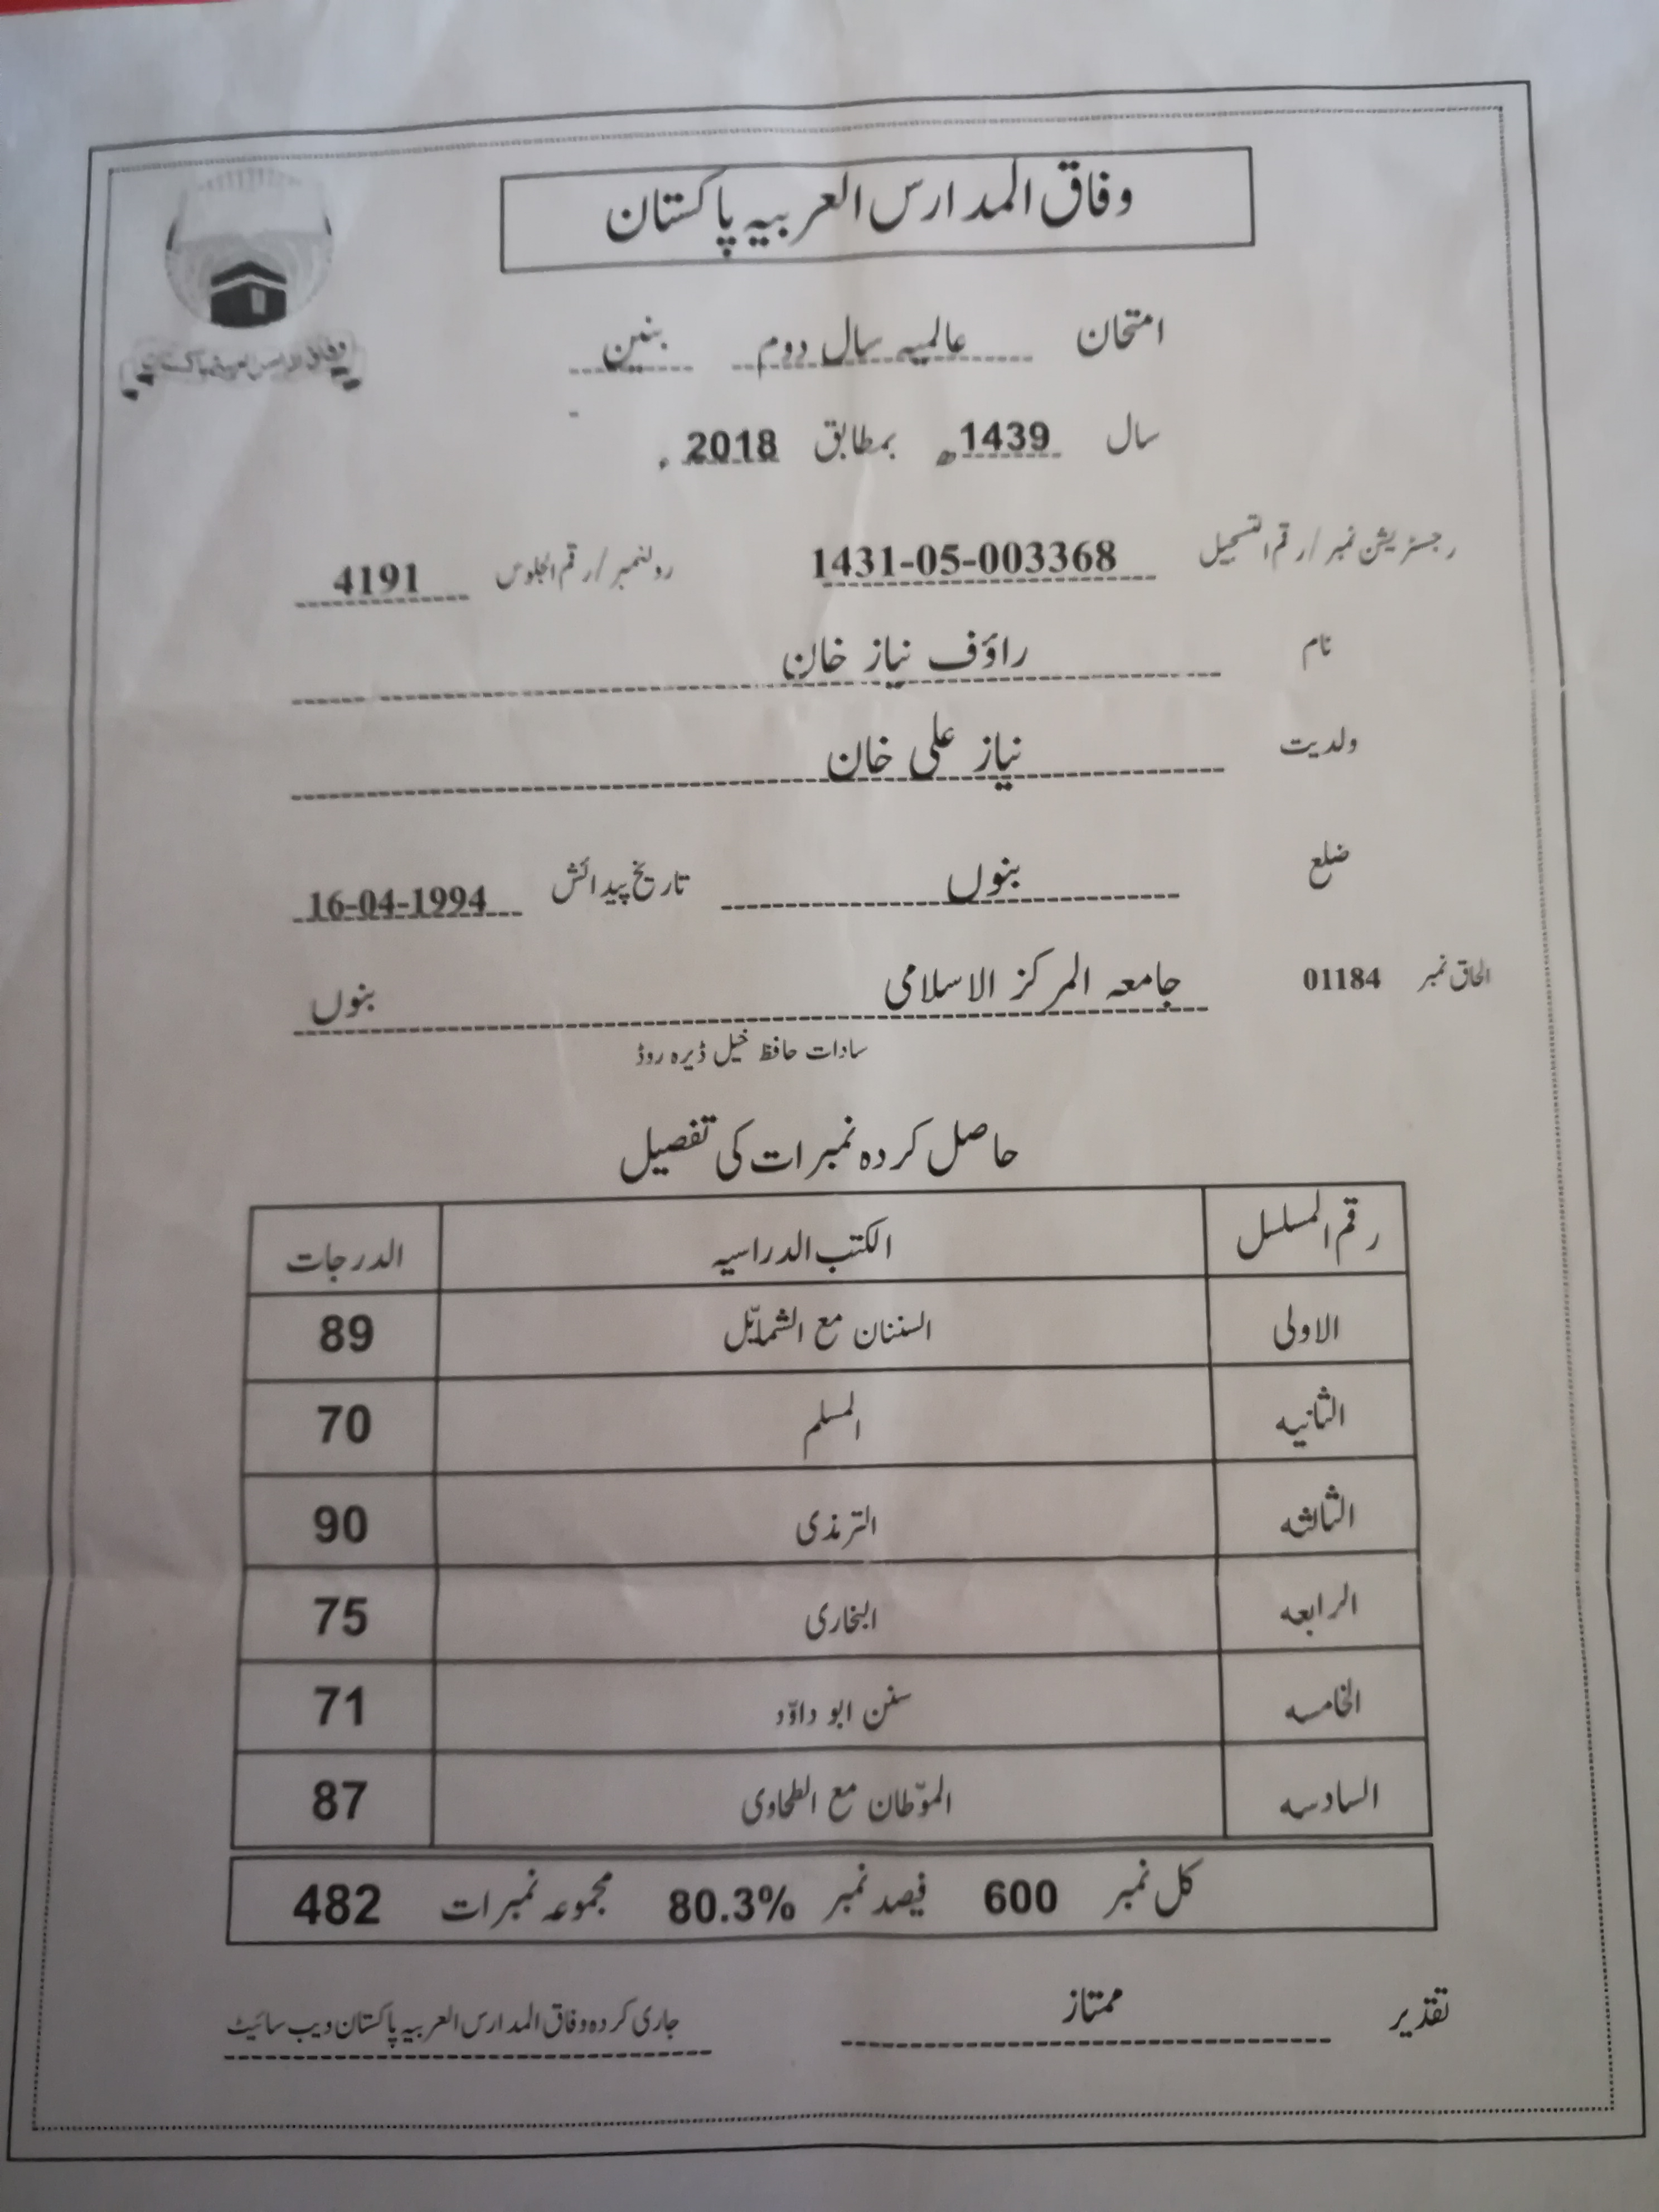 وفاق المدارس العربیہ پاکستان
وفاق المدارس العربیہ پاکستان
امتحان عالمیہ سال دوم بنین
سال 1439ھ بمطابق 2018ء
رجسٹریشن نمبر/رقم التسجیل 1431-05-003368 رولنمبر/رقم الجلوس 4191
نام راؤف نیاز خان
ولدیت نیاز علی خان
ضلع بنوں تاریخ پیدائش 16-04-1994
الحاق نمبر 01184 جامعہ المرکز الاسلامی بنوں
سادات حافظ خیل ڈیرہ روڈ
حاصل کردہ نمبرات کی تفصیل
رقم المسلسل الکتب الدراسیہ الدرجات
الاولی السننان مع الشمائل 89
الثانیہ المسلم 70
الثالثہ الترمذی 90
الرابعہ البخاری 75
الخامسہ سنن ابو داؤد 71
السادسہ المؤطان مع الطحاوی 87
کل نمبر 600 فیصد نمبر 80.3% مجموعہ نمبرات 482
تقدیر ممتاز جاری کردہ وفاق المدارس العربیہ پاکستان ویب سائیٹ